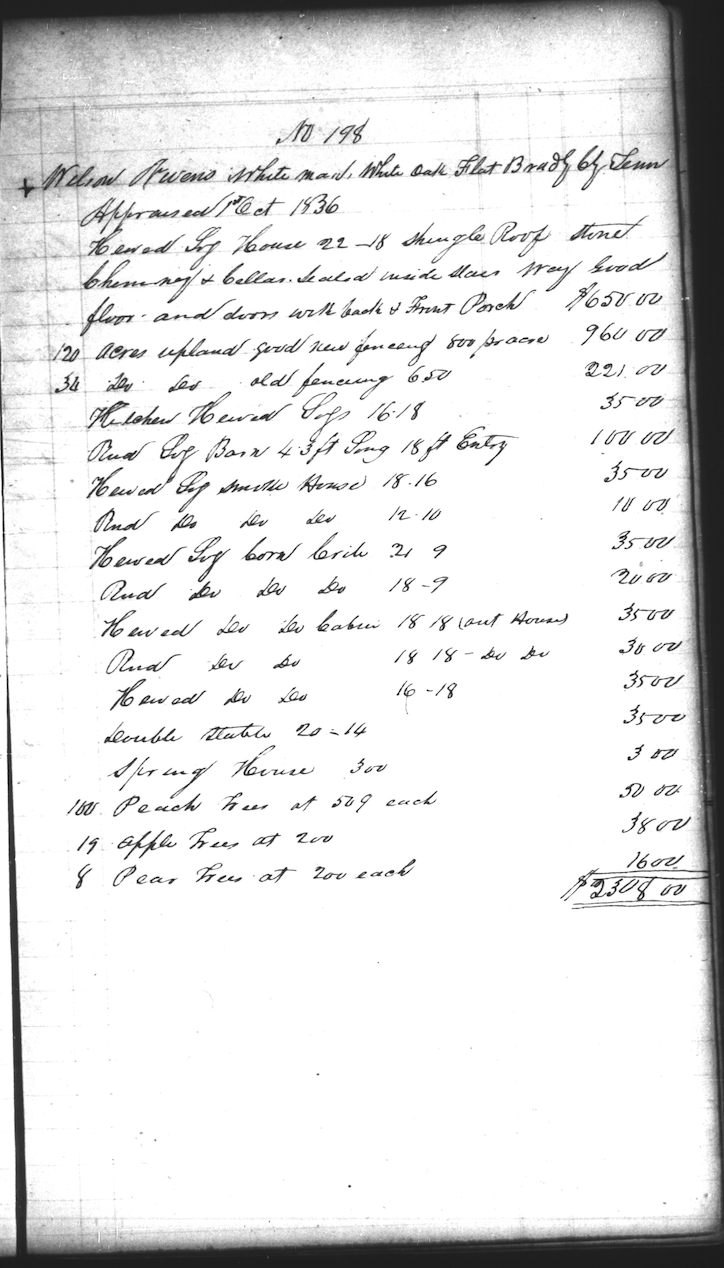 No 198
+ Wilson Owens White man. White Oak Flat Bradly Cty Tenn
Appraised 1st Oct 1836
Hewed Log House 22-18 Shingle Roof stone
Chimney & Cellar. Sealed inside stair way Good
floor. and doors with back & Front Porch $650 00
120 acres upland good new fencing 800 pr acre 960 00
34 Do Do old fencing 650 221 00
Kitchen Hewed Logs 16-18 35 00
Rnd Log Barn 43 ft Long 18 ft Entry 100 00
Hewed Log smoke House 18.16 35 00
Rnd Do Do Do 12-10 10 00
Hewed Log Corn Crib 21 9 35 00
Rnd Do Do Do 18-9 20 00
Hewed Do Do Cabin 18 18 (out House) 35 00
Rnd Do Do 18 18 - Do Do 30 00
Hewed Do Do 16-18 35 00
Double Stable 20-14 35 00
Spring House 300 3 00
100 Peach Trees at 50¢ each 50 00
19 Apple Trees at 200 38 00
8 Pear Trees at 200 each 16 00
$2308 00